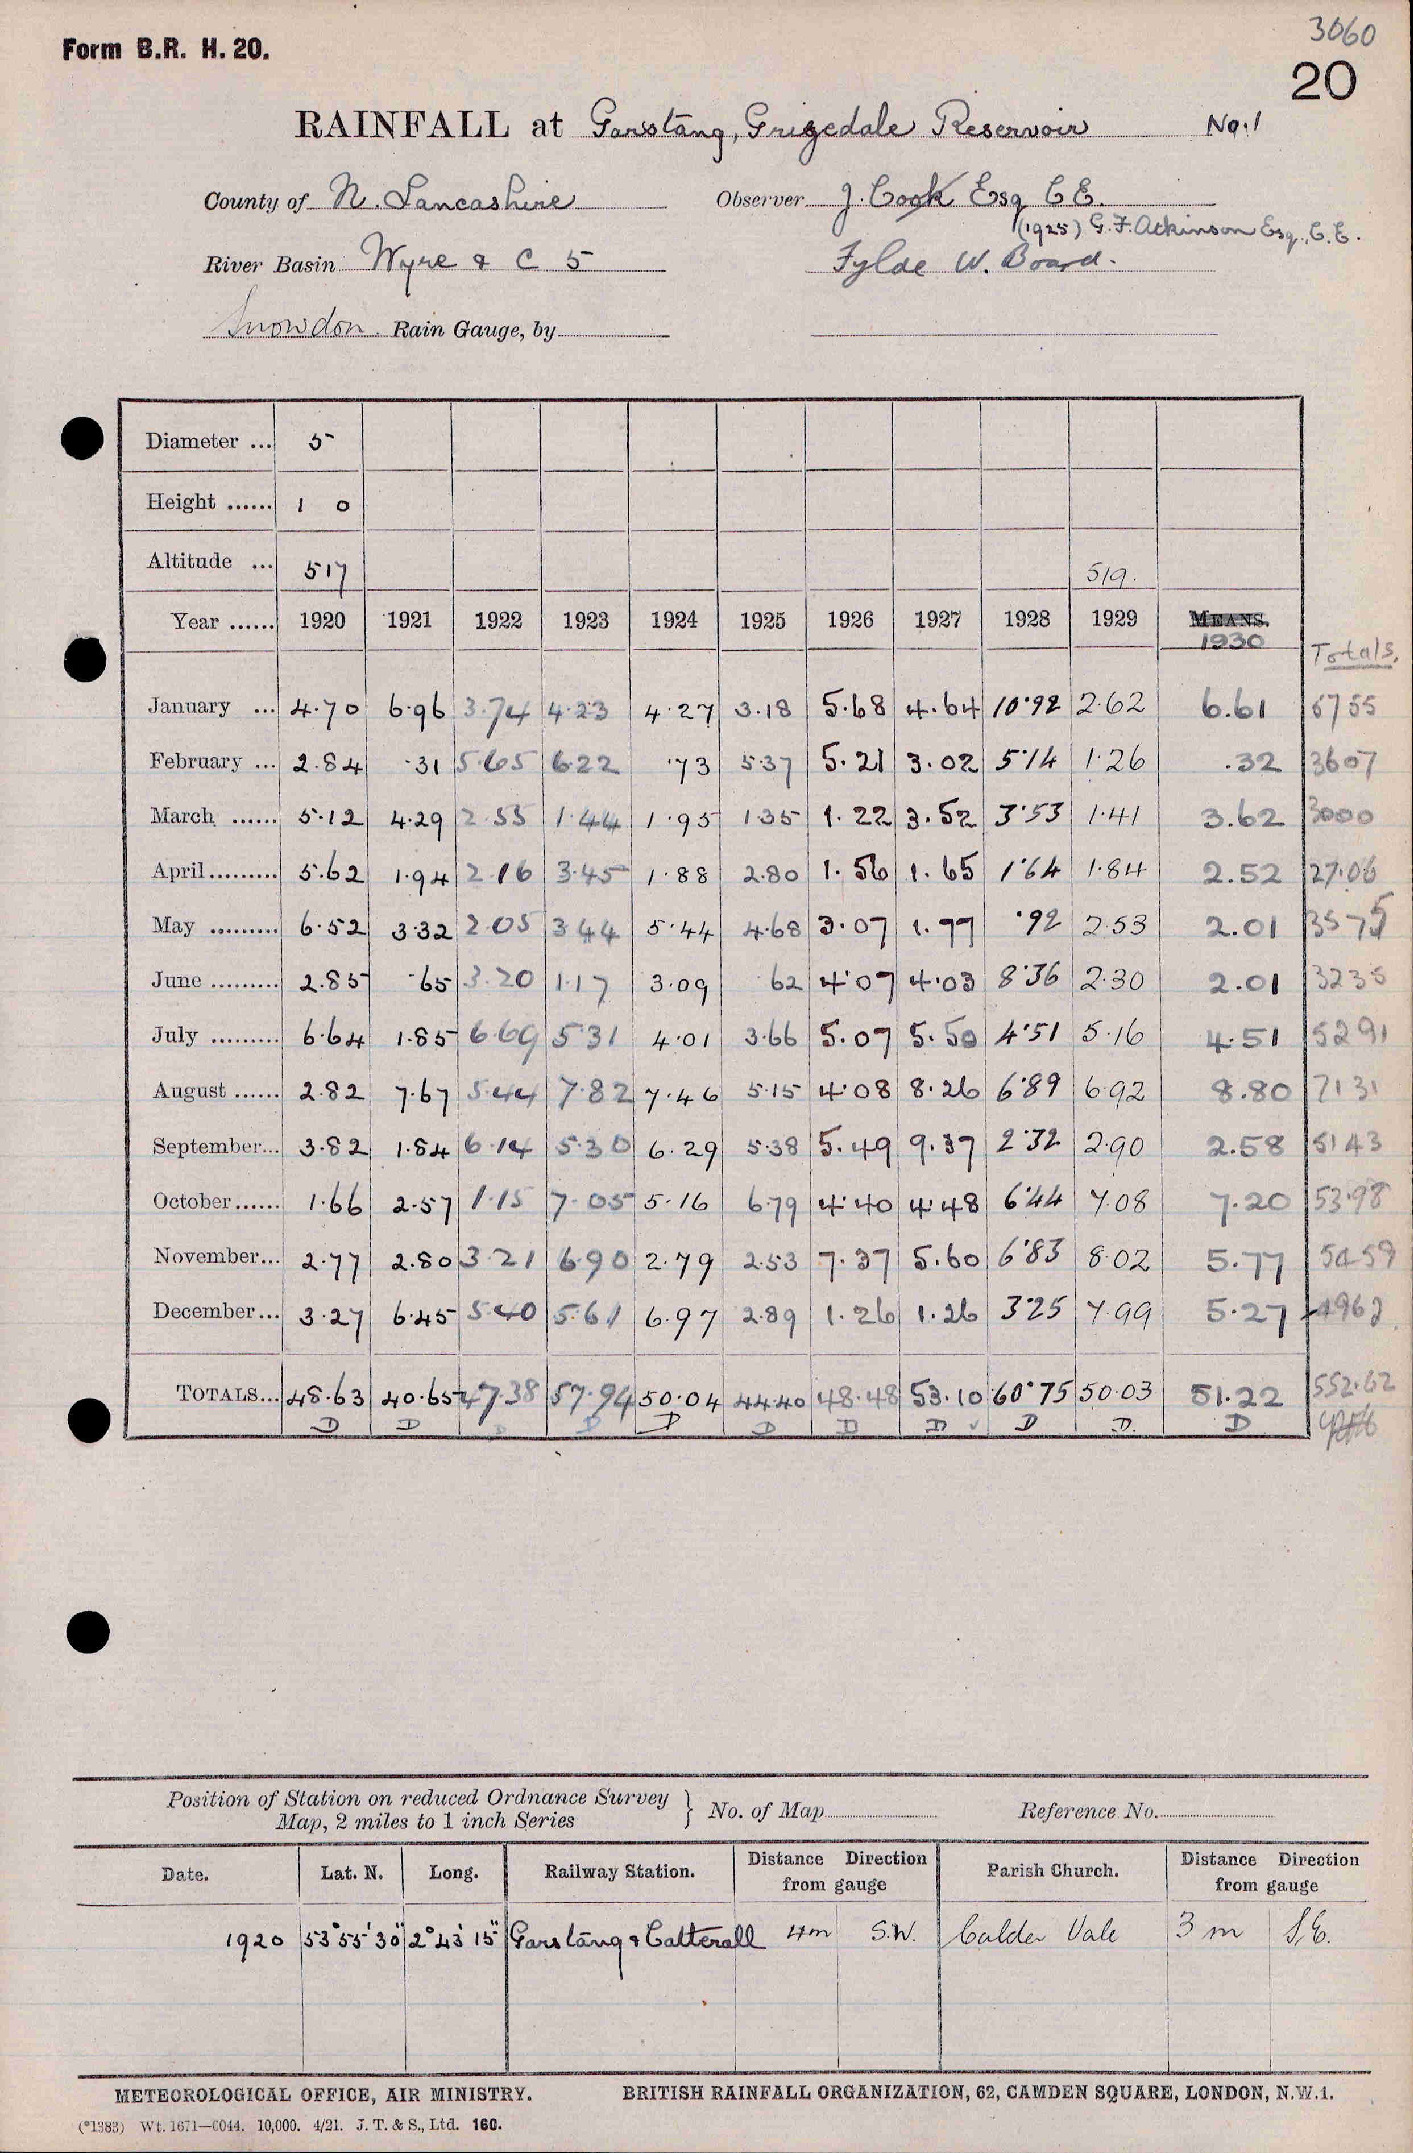 3060
Form B.R. H. 20.
20
RAINFALL at Garstang, Grizedale Reservoir No. 1
County of N. Lancashire Observer J. Cook Esq C E.
(1925) G. F. Atkinson Esq., C. E.
River Basin Wyre & C 5 Fylde W. Board.
Snowdon Rain Gauge, by
Diameter ... 5
Height ...... 1 0
Altitude ... 517 519.
Year ...... 1920 1921 1922 1923 1924 1925 1926 1927 1928 1929 MEANS.
1930 Totals.
January ... 4.70 6.96 3.74 4.23 4.27 3.18 5.68 4.64 10.92 2.62 6.61 5755
February ... 2.84 .31 5.65 6.22 .73 5.37 5.21 3.02 5.14 1.26 .32 3607
March ...... 5.12 4.29 2.55 1.44 1.95 1.35 1.22 3.52 3.53 1.41 3.62 3000
April ......... 5.62 1.94 2.16 3.45 1.88 2.80 1.56 1.65 1.64 1.84 2.52 27.06
May ......... 6.52 3.32 2.05 3.44 5.44 4.68 3.07 1.77 .92 2.53 2.01 3575
June ......... 2.85 .65 3.20 1.17 3.09 .62 4.07 4.03 8.36 2.30 2.01 3235
July ......... 6.64 1.85 6.69 5.31 4.01 3.66 5.07 5.50 4.51 5.16 4.51 5291
August ...... 2.82 7.67 5.44 7.82 7.46 5.15 4.08 8.26 6.89 6.92 8.80 7131
September... 3.82 1.84 6.14 5.30 6.29 5.38 5.49 9.37 2.32 2.90 2.58 5143
October...... 1.66 2.57 1.15 7.05 5.16 6.79 4.40 4.48 6.44 7.08 7.20 53.98
November... 2.77 2.80 3.21 6.90 2.79 2.53 7.37 5.60 6.83 8.02 5.77 5459
December... 3.27 6.45 5.40 5.61 6.97 2.89 1.26 1.26 3.25 7.99 5.27 4962
TOTALS... 48.63 40.65 47.38 57.94 50.04 44.40 48.48 53.10 60.75 50.03 51.22 552.62
D D D D D D D D ✓ D D. D
Position of Station on reduced Ordnance Survey
Map, 2 miles to 1 inch Series } No. of Map Reference No.
Date. Lat. N. Long. Railway Station. Distance Direction from gauge Parish Church. Distance Direction from gauge
1920 53° 55' 30" 2° 43' 15" Garstang & Catterall 4m S.W. Calder Vale 3 m S.E.
METEOROLOGICAL OFFICE, AIR MINISTRY. BRITISH RAINFALL ORGANIZATION, 62, CAMDEN SQUARE, LONDON, N.W.1.
(*1383) Wt. 1671—C044. 10,000. 4/21. J. T. & S., Ltd. 160.